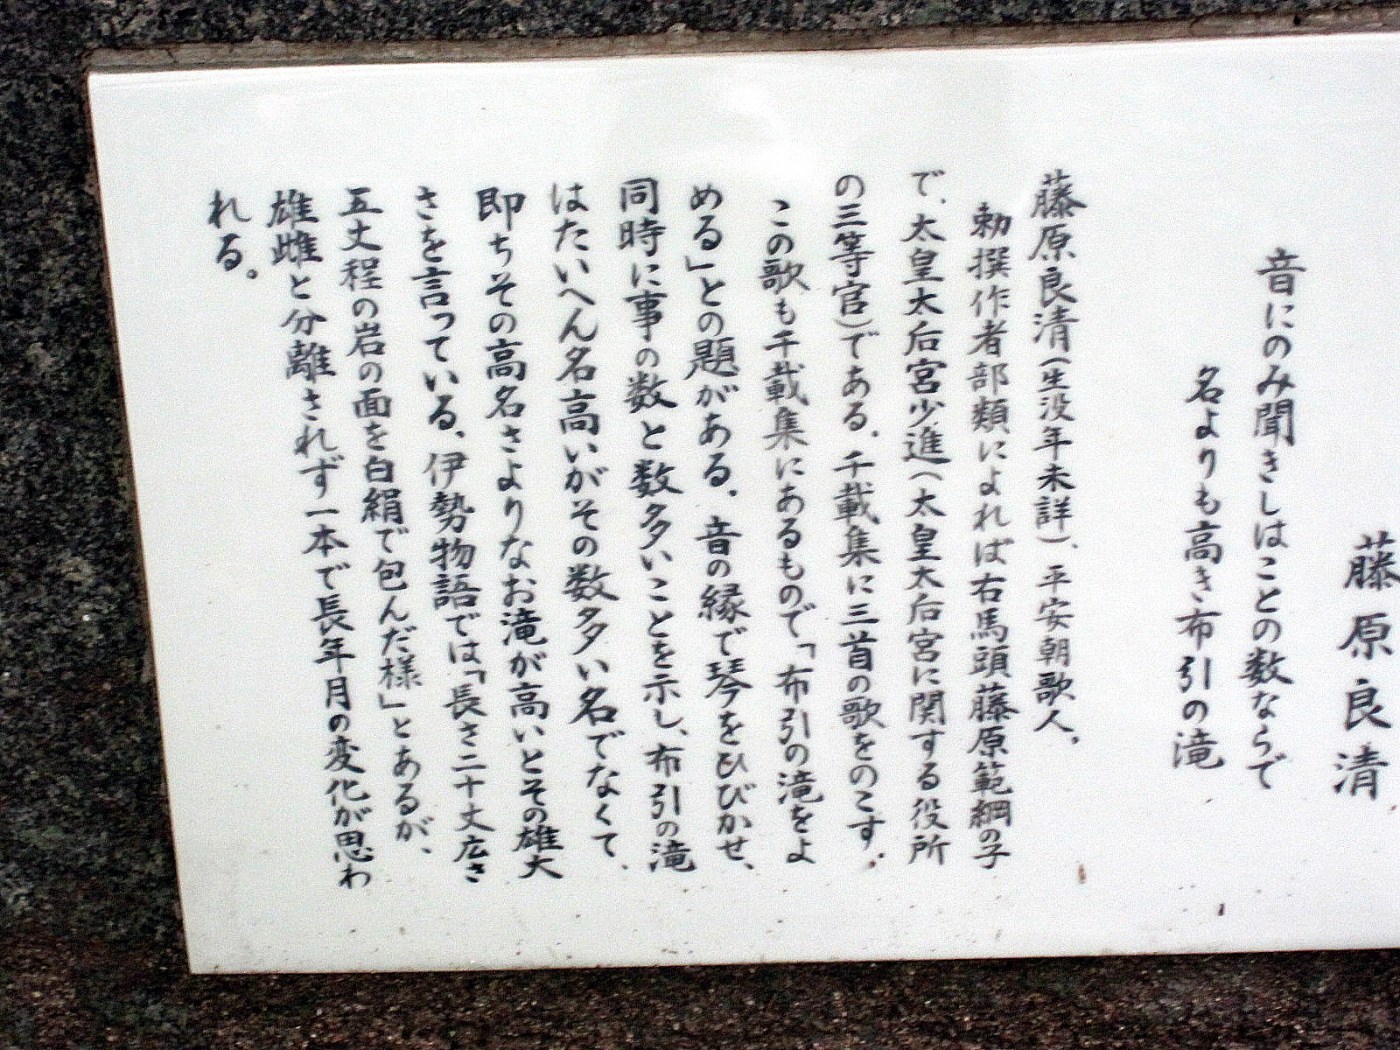 藤原良清
音にのみ聞きしはことの数ならで
名よりも高き布引の滝
藤原良清(生没年未詳)、平安朝歌人。
勅撰作者部類によれば右馬頭藤原範綱の子
で、太皇太后宮少進(太皇太后宮に関する役所
の三等官)である。千載集に三首の歌をのこす。
この歌も千載集にあるもので「布引の滝をよ
める」との題がある。音の縁で琴をひびかせ、
同時に事の数と数多いことを示し、布引の滝
はたいへん名高いがその数多い名でなくて、
即ちその高名さよりなお滝が高いとその雄大
さを言っている。伊勢物語では「長き二十丈広さ
五丈程の岩の面を白絹で包んだ様」とあるが、
雄雌と分離されず一本で長年月の変化が思わ
れる。